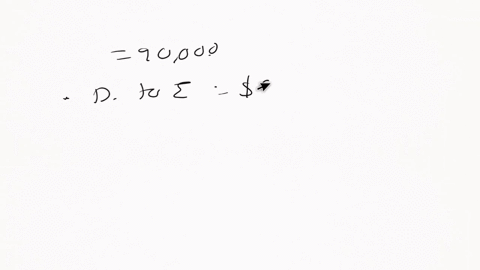 = 90,000
. D. to Σ = $